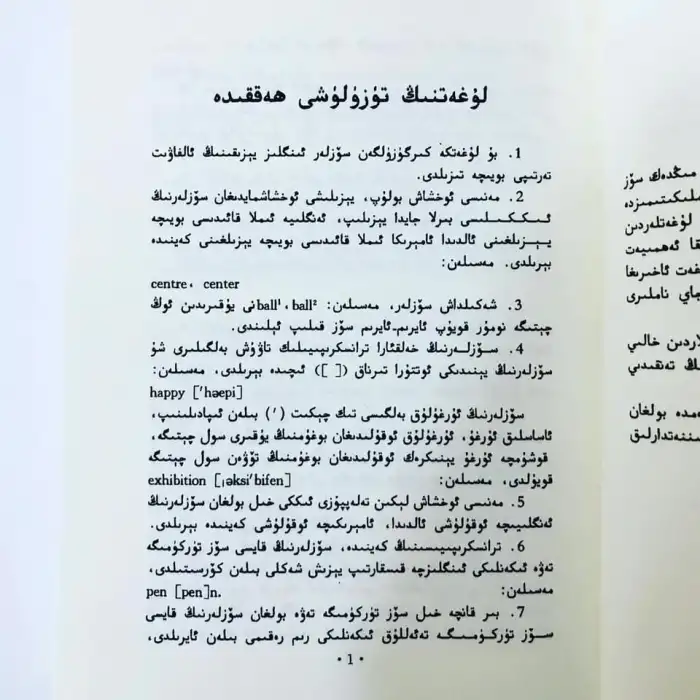 لۇغەتنىڭ تۈزۈلۈشى ھەققىدە
1. بۇ لۇغەتكە كىرگۈزۈلگەن سۆزلەر ئىنگلىز يېزىقىنىڭ ئالفاۋىت
تەرتىپى بويىچە تىزىلدى.
2. مەنىسى ئوخشاش بولۇپ، يېزىلىشى ئوخشاشمايدىغان سۆزلەرنىڭ
ئىككىلىسى بىرلا جايدا يېزىلىپ، ئەنگلىيە ئىملا قائىدىسى بويىچە
يېزىلغىنى ئالدىدا ئامېرىكا ئىملا قائىدىسى بويىچە يېزىلغىنى كەينىدە
بېرىلدى. مەسىلەن:
centre، center
3. شەكىلداش سۆزلەر، مەسىلەن: ball¹، ball²نى يۇقىرىدىن ئوڭ
چېتىگە نومۇر قويۇپ ئايرىم-ئايرىم سۆز قىلىپ ئېلىندى.
4. سۆزلەرنىڭ خەلقئارا ترانسكرىپىيىلىك تاۋۇش بەلگىلىرى شۇ
سۆزلەرنىڭ يېنىدىكى ئوتتۇرا تىرناق ([ ]) ئىچىدە بېرىلدى، مەسىلەن:
happy ['hæpi]
سۆزلەرنىڭ ئۇرغۇلۇق بەلگىسى تىك چېكىت (') بىلەن ئىپادىلىنىپ،
ئاساسلىق ئۇرغۇ، ئۇرغۇلۇق ئوقۇلىدىغان بوغۇمنىڭ يۇقىرى سول چېتىگە،
قوشۇمچە ئۇرغۇ يېنىكرەك ئوقۇلىدىغان بوغۇمنىڭ تۆۋەن سول چېتىگە
قويۇلدى، مەسىلەن: exhibition
5. مەنىسى ئوخشاش لېكىن تەلەپپۇزى ئىككى خىل بولغان سۆزلەرنىڭ
ئەنگلىيىچە ئوقۇلۇشى ئالدىدا، ئامېرىكىچە ئوقۇلۇشى كەينىدە بېرىلدى.
6. ترانسكرىپىيىسىنىڭ كەينىدە، سۆزلەرنىڭ قايسى سۆز تۈركۈمىگە
تەۋە ئىكەنلىكى ئىنگلىزچە قىسقارتىپ يېزىش شەكلى بىلەن كۆرسىتىلدى،
مەسىلەن: pen [pen]n.
7. بىر قانچە خىل سۆز تۈركۈمىگە تەۋە بولغان سۆزلەرنىڭ قايسى
سۆز تۈركۈمىگە تەئەللۇق ئىكەنلىكى رىم رەقىمى بىلەن ئايرىلدى،
· 1 ·
مىڭدەك سۆز
لۇغەتلەردىن
قا ئەھمىيەت
غەت ئاخىرىغا
ماي ناملىرى
لاردىن خالىي
ڭ تەنقىدىي
ەمدە بولغان